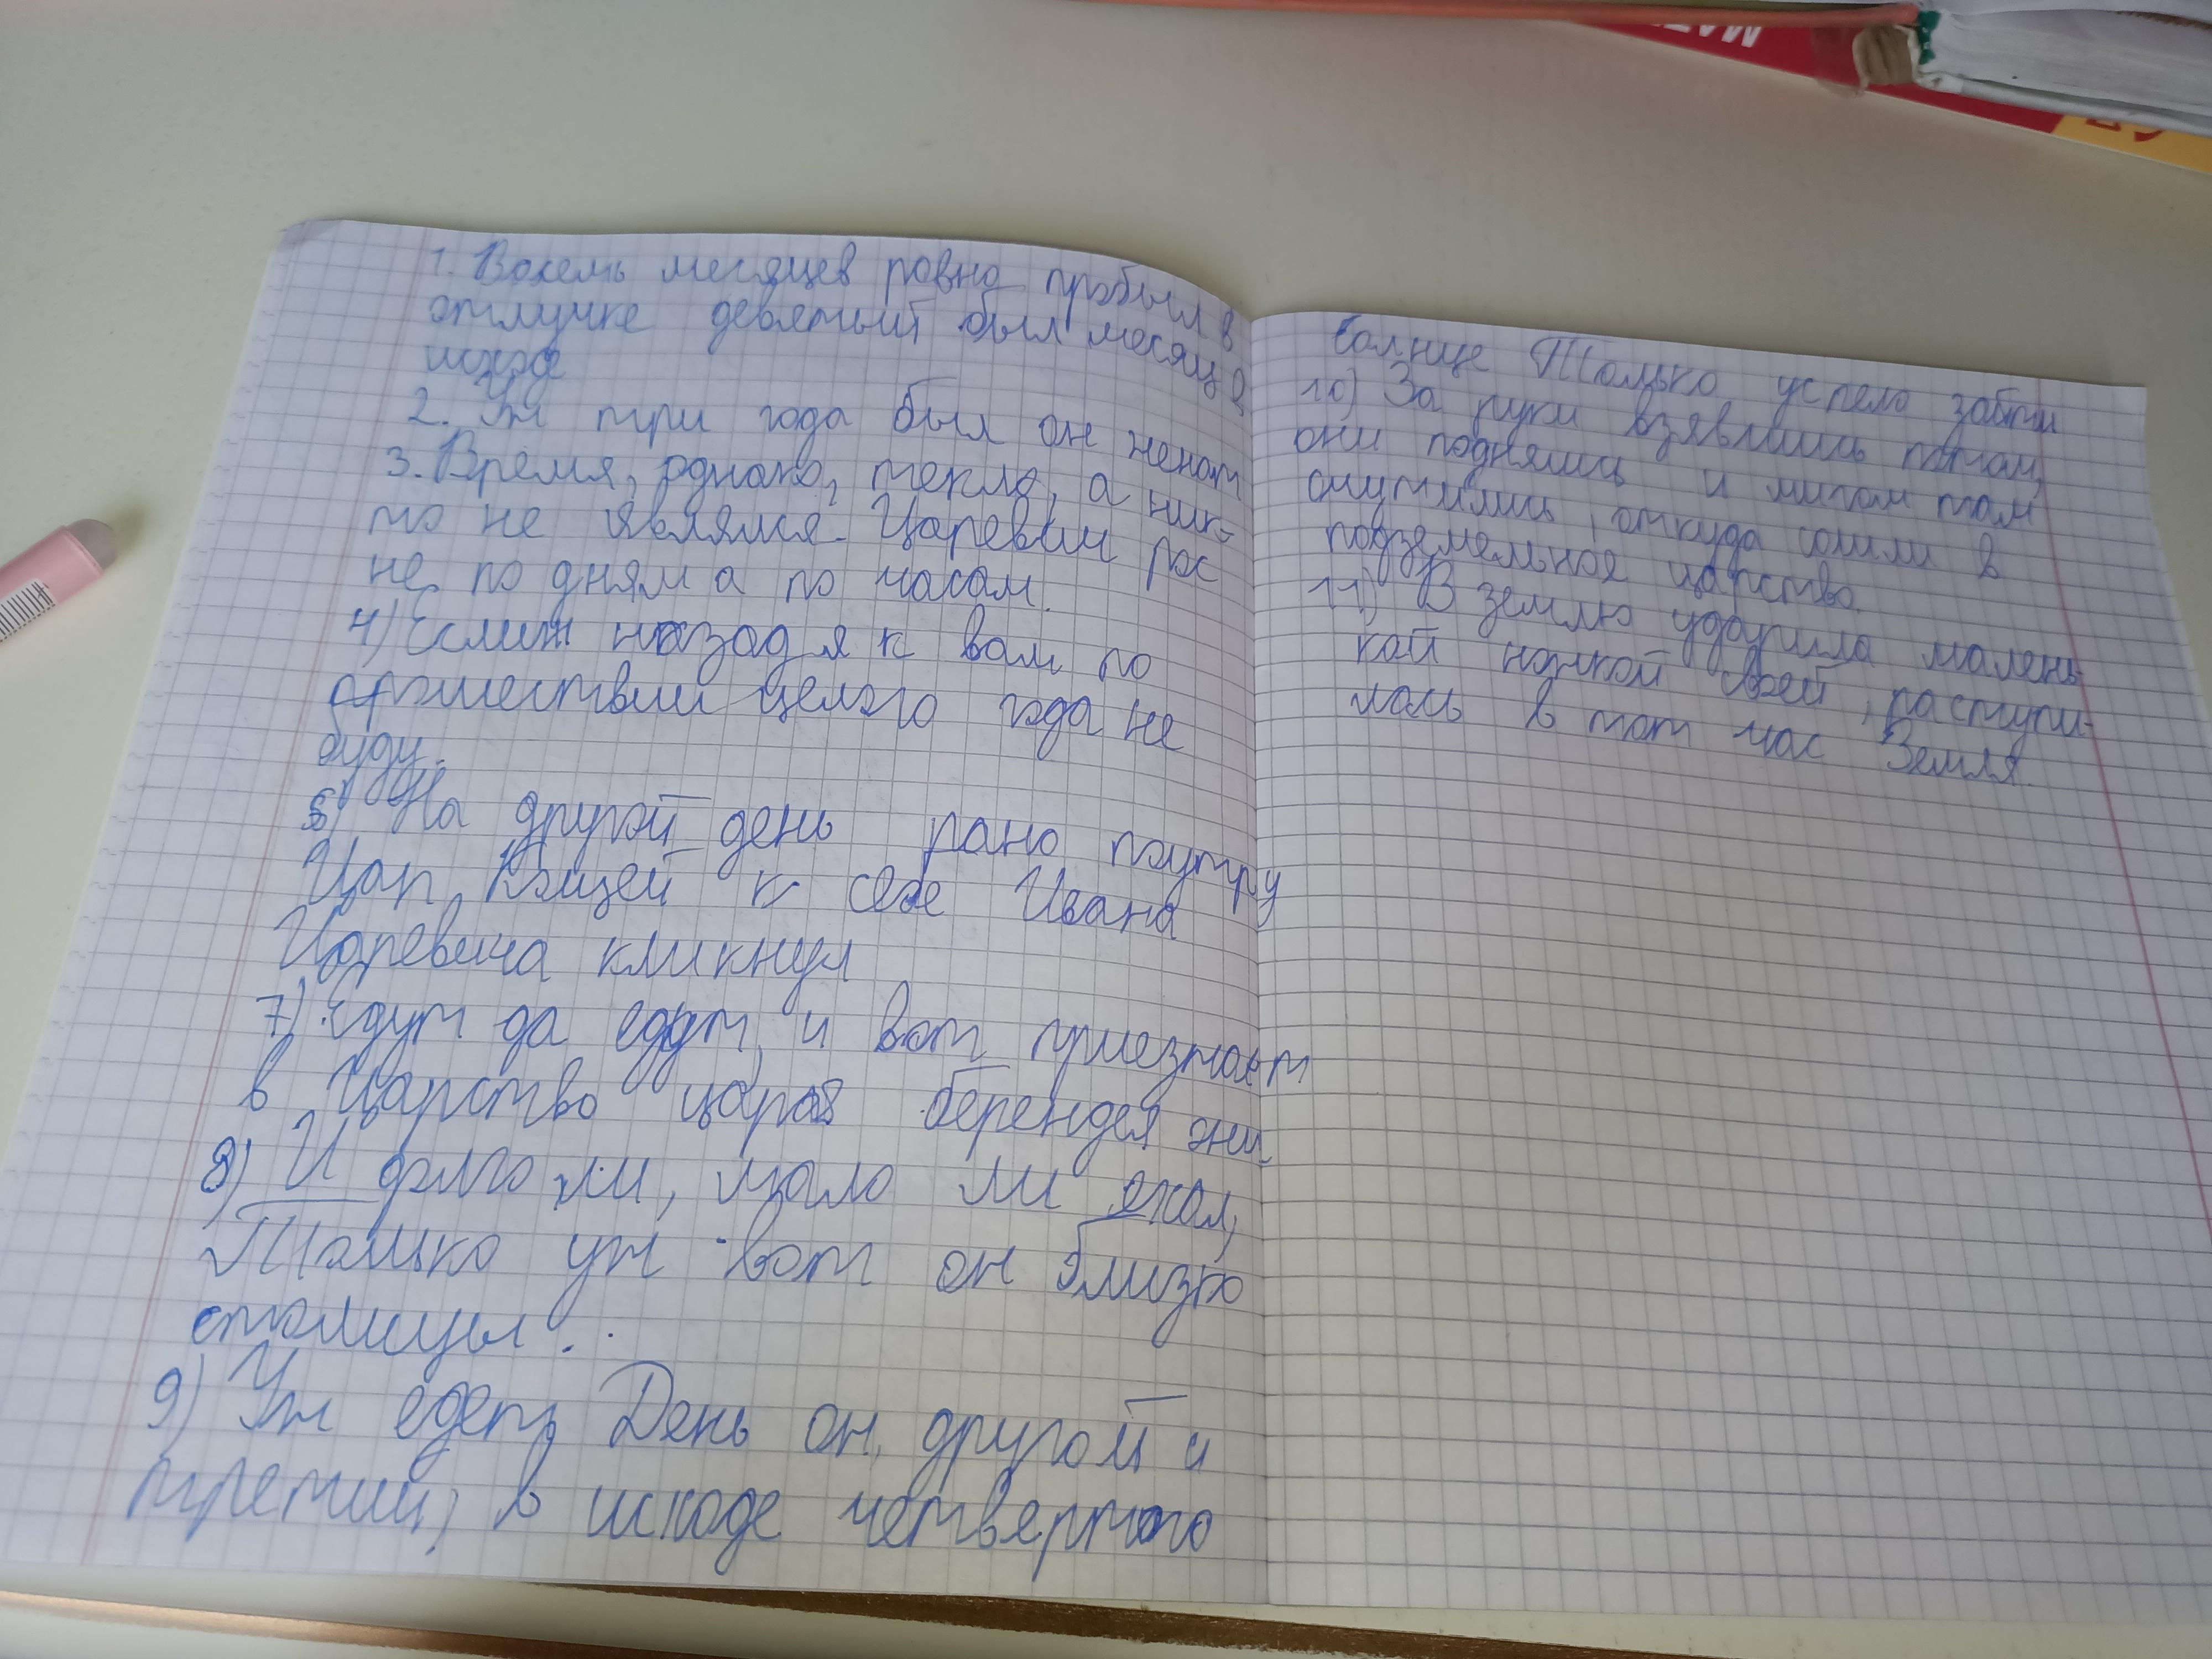 1. Восемь месяцев ровно пробыл в
отлучке девятый был месяц в
исходе
2. Уж три года был он женат
3. Время, однако, текло, а ник-
то не являлся. Царевич рос
не по дням а по часам.
4) Еслиж назад я к вам по
прошествии целого года не
буду.
5) На другой день рано поутру
Цар Кощей к себе Ивана
Царевича кликнул
7) Едут да едут, и вот приезжают
в Царство царя берендея они
8) И долго ли, мало ли ехал,
Только уж вот он близко
столицы.
9) Уж едет День он другой и
третий, в исходе четвертого
Солнце Только успело зайти
10) За руки взявшись потом,
они поднялись и мигом там
очутились, откуда сошли в
подземельное царство.
11) В землю ударила малень-
кой ножкой своей, расступи-
лась в тот час Земля.
МАТ